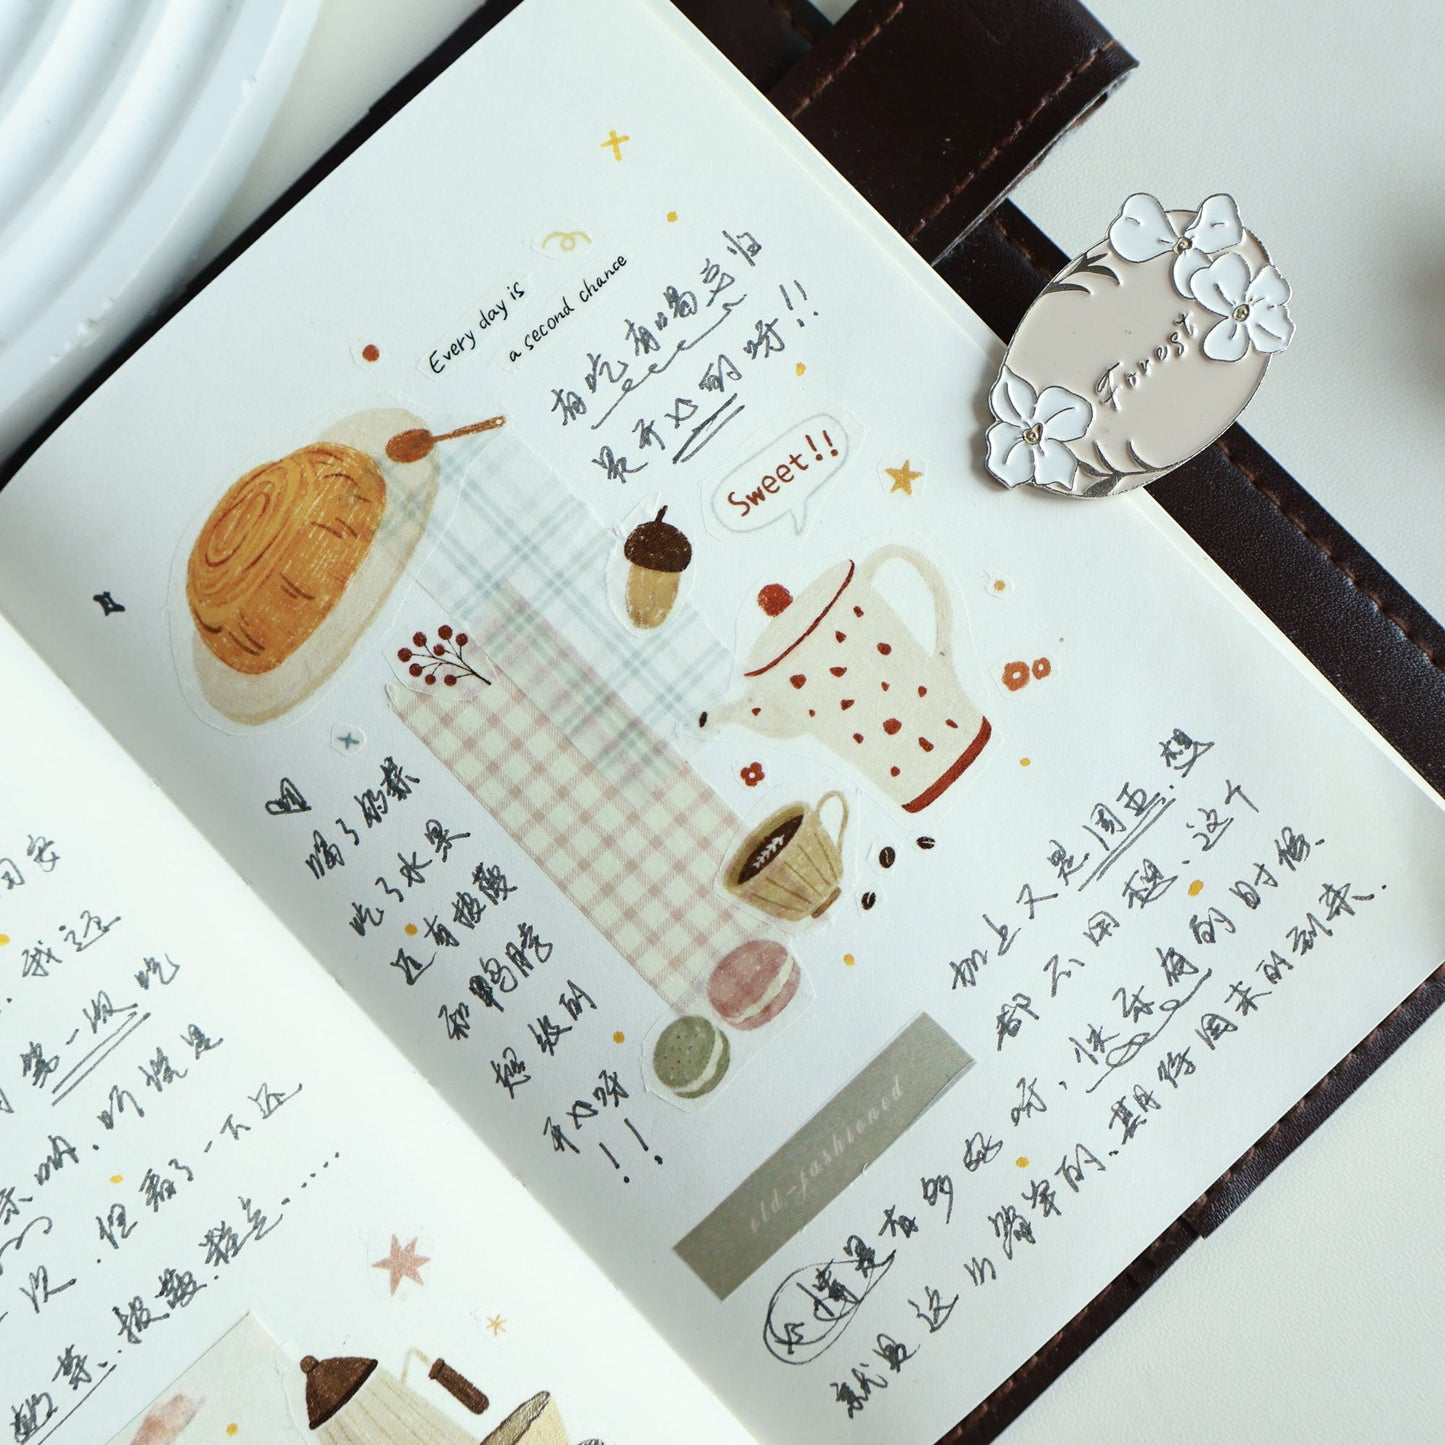 Every day is
a second chance
有吃有喝总归
是开心的呀!!
Sweet!!
Forest
喝了奶茶
吃了水果
还有披萨
和鸭脖
超级的
开心呀
!!
加上又是周五,想
都不用想、这个
心情是有多好呀,快乐有的时候、
就是这么简单的、期待周末的到来.
old-fashioned
安
我还
第一次吃
听说是
次,但看了一下还
披萨,糕点....